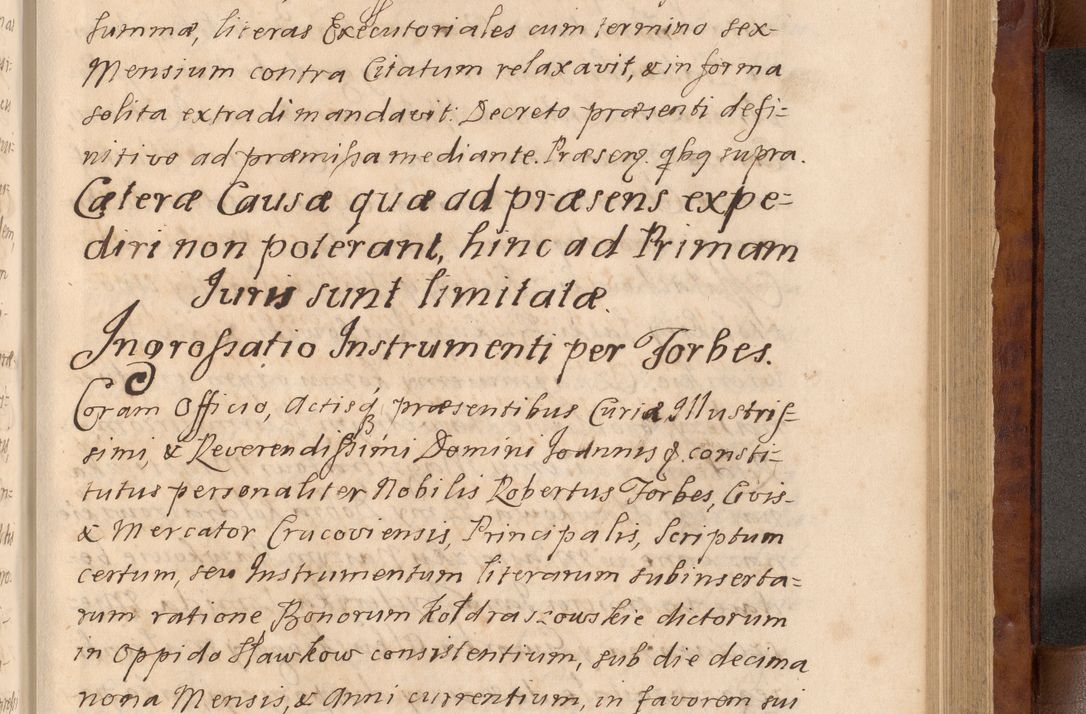 summæ, literas Executoriales cum termino sex-
Mensium contra Citatum relaxavit, & in forma
solita extradi mandavit. Decreto præsenti defi=
nitivo ad præmissa mediante. Præsenq. qbq supra.
Cæteræ Causæ quæ ad præsens expe=
diri non poterant, hinc ad Primam
Juris sunt limitatæ.
Ingrossatio Instrumenti per Forbes.
Coram Officio, Actisq præsentibus Curiæ Illustris=
simi, & Reverendissimi Domini Joannis q. consti=
tutus personaliter Nobilis Robertus Forbes, Civis-
& Mercator Cracoviensis, Principalis, Scriptum
certum, seu Instrumentum literarum subinserta=
rum ratione Bonorum Kołdraszowskie dictorum
in Oppido Sławkow consistentium, sub die decima
nona Mensis, & Anni currentium, in favorem sui